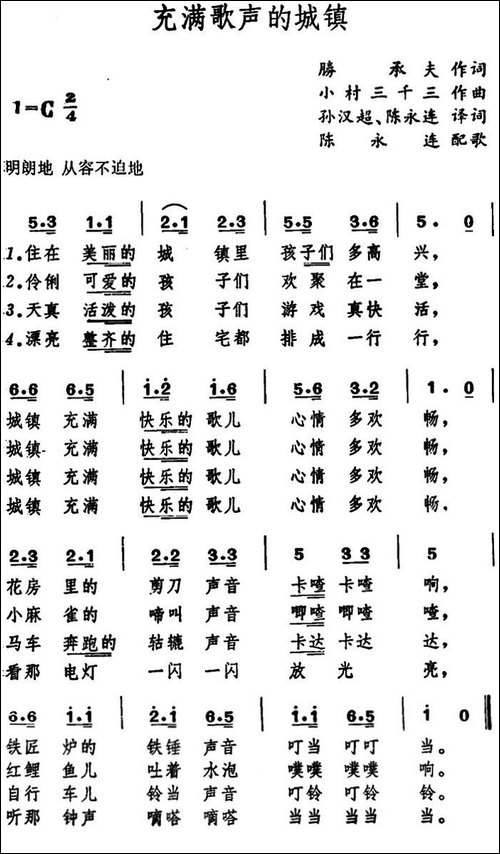 充满歌声的城镇
勝 承夫 作词
1=C 2/4
小村三千三 作曲
孙汉超、陈永连 译词
陈永连 配歌
明朗地 从容不迫地
5.3 1.1 | 2.1 2.3 | 5.5 3.6 | 5. 0
1.住在 美丽的 城 镇里 孩子们 多高 兴,
2.伶俐 可爱的 孩 子们 欢聚 在一 堂,
3.天真 活泼的 孩 子们 游戏 真快 活,
4.漂亮 整齐的 住 宅都 排成 一行 行,
6.6 6.5 | i.2̇ i.6 | 5.6 3.2 | 1. 0
城镇 充满 快乐的 歌儿 心情 多欢 畅,
城镇 充满 快乐的 歌儿 心情 多欢 畅,
城镇 充满 快乐的 歌儿 心情 多欢 畅,
城镇 充满 快乐的 歌儿 心情 多欢 畅.
2.3 2.1 | 2.2 3.3 | 5 3 3 | 5
花房 里的 剪刀 声音 卡喳 卡喳 响,
小麻 雀的 啼叫 声音 唧喳 唧喳 喳,
马车 奔跑的 轱辘 声音 卡达 卡达 达,
看那 电灯 一闪 一闪 放 光 亮,
6.6 i.i | 2̇.i 6.5 | i.i 6.5 | i 0 ‖
铁匠 炉的 铁锤 声音 叮当 叮叮 当。
红鲤 鱼儿 吐着 水泡 噗噗 噗噗 响。
自行 车儿 铃当 声音 叮铃 叮铃 铃。
听那 钟声 嘀嗒 嘀嗒 当当 当当 当。